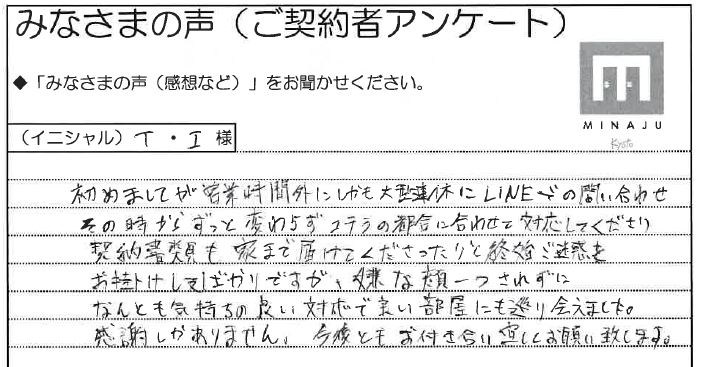 みなさまの声（ご契約者アンケート）
◆「みなさまの声（感想など）」をお聞かせください。
MINAJU
Kyoto
（イニシャル）T・I様
初めましてが営業時間外にしかも大型連休にLINEでの問い合わせ
その時からずっと変わらずコチラの都合に合わせて対応してくださり
契約書類も家まで届けてくださったりと終始ご迷惑を
お掛けしてばかりですが、嫌な顔一つされずに
なんとも気持ちの良い対応で良い部屋にも巡り会えました。
感謝しかありません。今後ともお付き合い宜しくお願い致します。